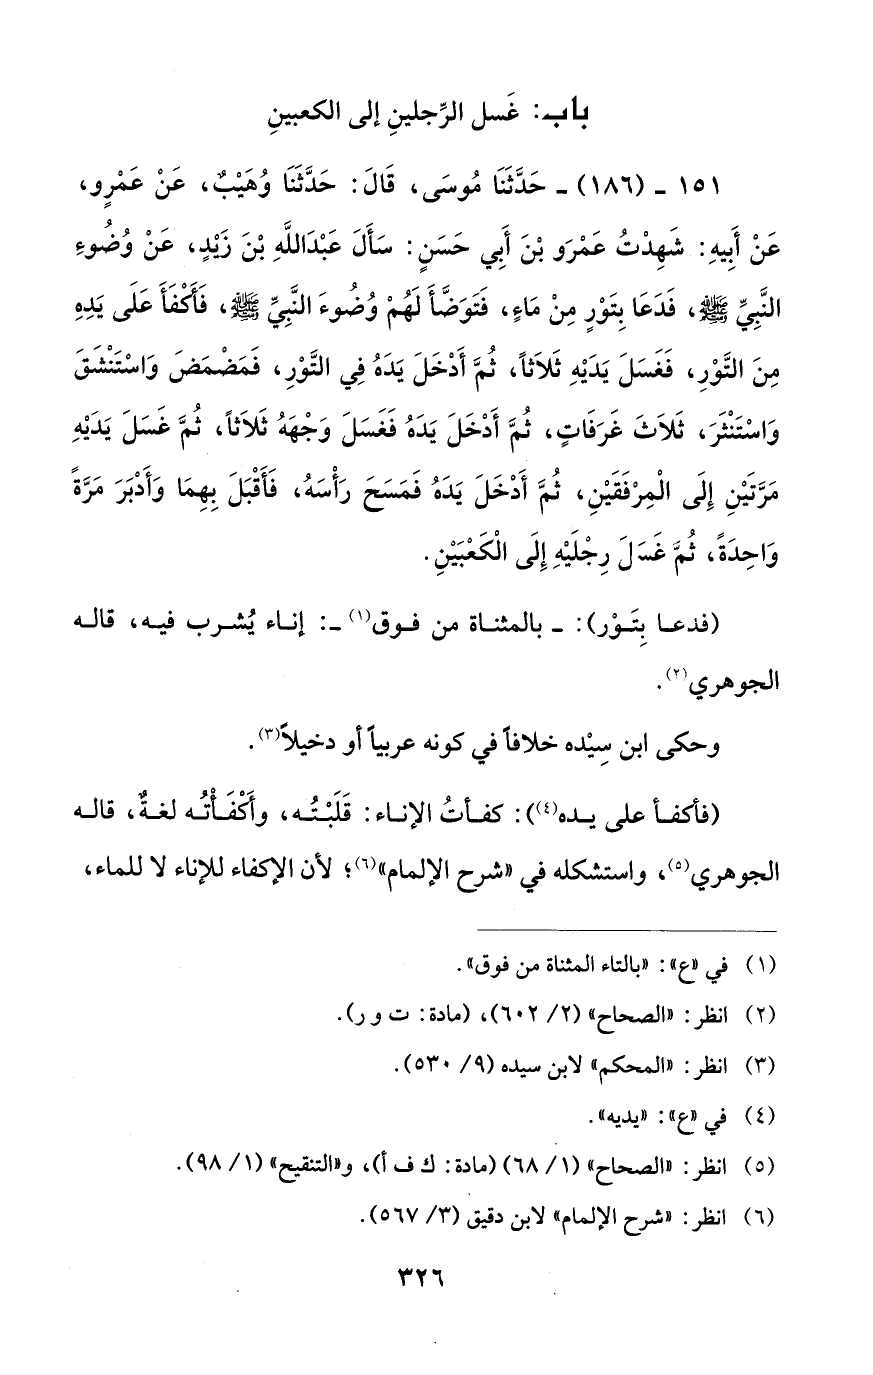 باب: غَسل الرِّجلينِ إلى الكعبينِ
١٥١ ـ (١٨٦) ـ حَدَّثَنَا مُوسَى، قَالَ: حَدَّثَنَا وُهَيْبٌ، عَنْ عَمْرٍو،
عَنْ أَبِيهِ: شَهِدْتُ عَمْرَو بْنَ أَبِي حَسَنٍ: سَأَلَ عَبْدَاللَّهِ بْنَ زَيْدٍ، عَنْ وُضُوءِ
النَّبِيِّ ﷺ، فَدَعَا بِتَوْرٍ مِنْ مَاءٍ، فَتَوَضَّأَ لَهُمْ وُضُوءَ النَّبِيِّ ﷺ، فَأَكْفَأَ عَلَى يَدِهِ
مِنَ التَّوْرِ، فَغَسَلَ يَدَيْهِ ثَلَاثاً، ثُمَّ أَدْخَلَ يَدَهُ فِي التَّوْرِ، فَمَضْمَضَ وَاسْتَنْشَقَ
وَاسْتَنْثَرَ، ثَلَاثَ غَرَفَاتٍ، ثُمَّ أَدْخَلَ يَدَهُ فَغَسَلَ وَجْهَهُ ثَلَاثاً، ثُمَّ غَسَلَ يَدَيْهِ
مَرَّتَيْنِ إِلَى الْمِرْفَقَيْنِ، ثُمَّ أَدْخَلَ يَدَهُ فَمَسَحَ رَأْسَهُ، فَأَقْبَلَ بِهِمَا وَأَدْبَرَ مَرَّةً
وَاحِدَةً، ثُمَّ غَسَلَ رِجْلَيْهِ إِلَى الْكَعْبَيْنِ.
(فدعا بِتَوْر): ـ بالمثناة من فوق(١) ـ: إناء يُشرب فيه، قاله
الجوهري(٢).
وحكى ابن سِيْده خلافاً في كونه عربياً أو دخيلاً(٣).
(فأكفأ على يده(٤)): كفأتُ الإناء: قَلَبْتُه، وأَكْفَأْتُه لغةٌ، قاله
الجوهري(٥)، واستشكله في «شرح الإلمام»(٦)؛ لأن الإكفاء للإناء لا للماء،
(١) في «ع»: «بالتاء المثناة من فوق».
(٢) انظر: «الصحاح» (٢/ ٦٠٢)، (مادة: ت و ر).
(٣) انظر: «المحكم» لابن سيده (٩/ ٥٣٠).
(٤) في «ع»: «يديه».
(٥) انظر: «الصحاح» (١/ ٦٨) (مادة: ك ف أ)، و«التنقيح» (١/ ٩٨).
(٦) انظر: «شرح الإلمام» لابن دقيق (٣/ ٥٦٧).
٣٢٦